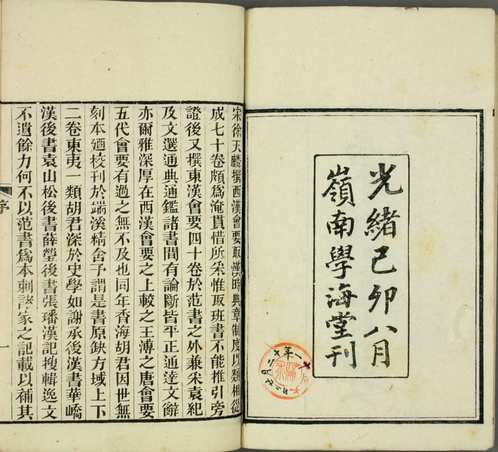 光緒己卯八月
嶺南學海堂刊
宋徐天麟撰西漢會要取漢時典章制度以類相從
成七十卷頗為淹貫惜所采惟取班書不能推引旁
證後又撰東漢會要四十卷於范書之外兼宋袁紀
及文選通典通鑑諸書間有論斷皆平正通達文辭
亦爾雅深厚在西漢會要之上較之王溥之唐會要
五代會要有過之無不及也同年香海胡君因世無
刻本迺校刊於端溪精舍予謂是書原缺方域上下
二卷東夷一類胡君深於史學如謝承後漢書華嶠
漢後書袁山松後書薛瑩後書張璠漢記搜輯逸文
不遺餘力何不以范書為本刺諸家之記載以補其
序